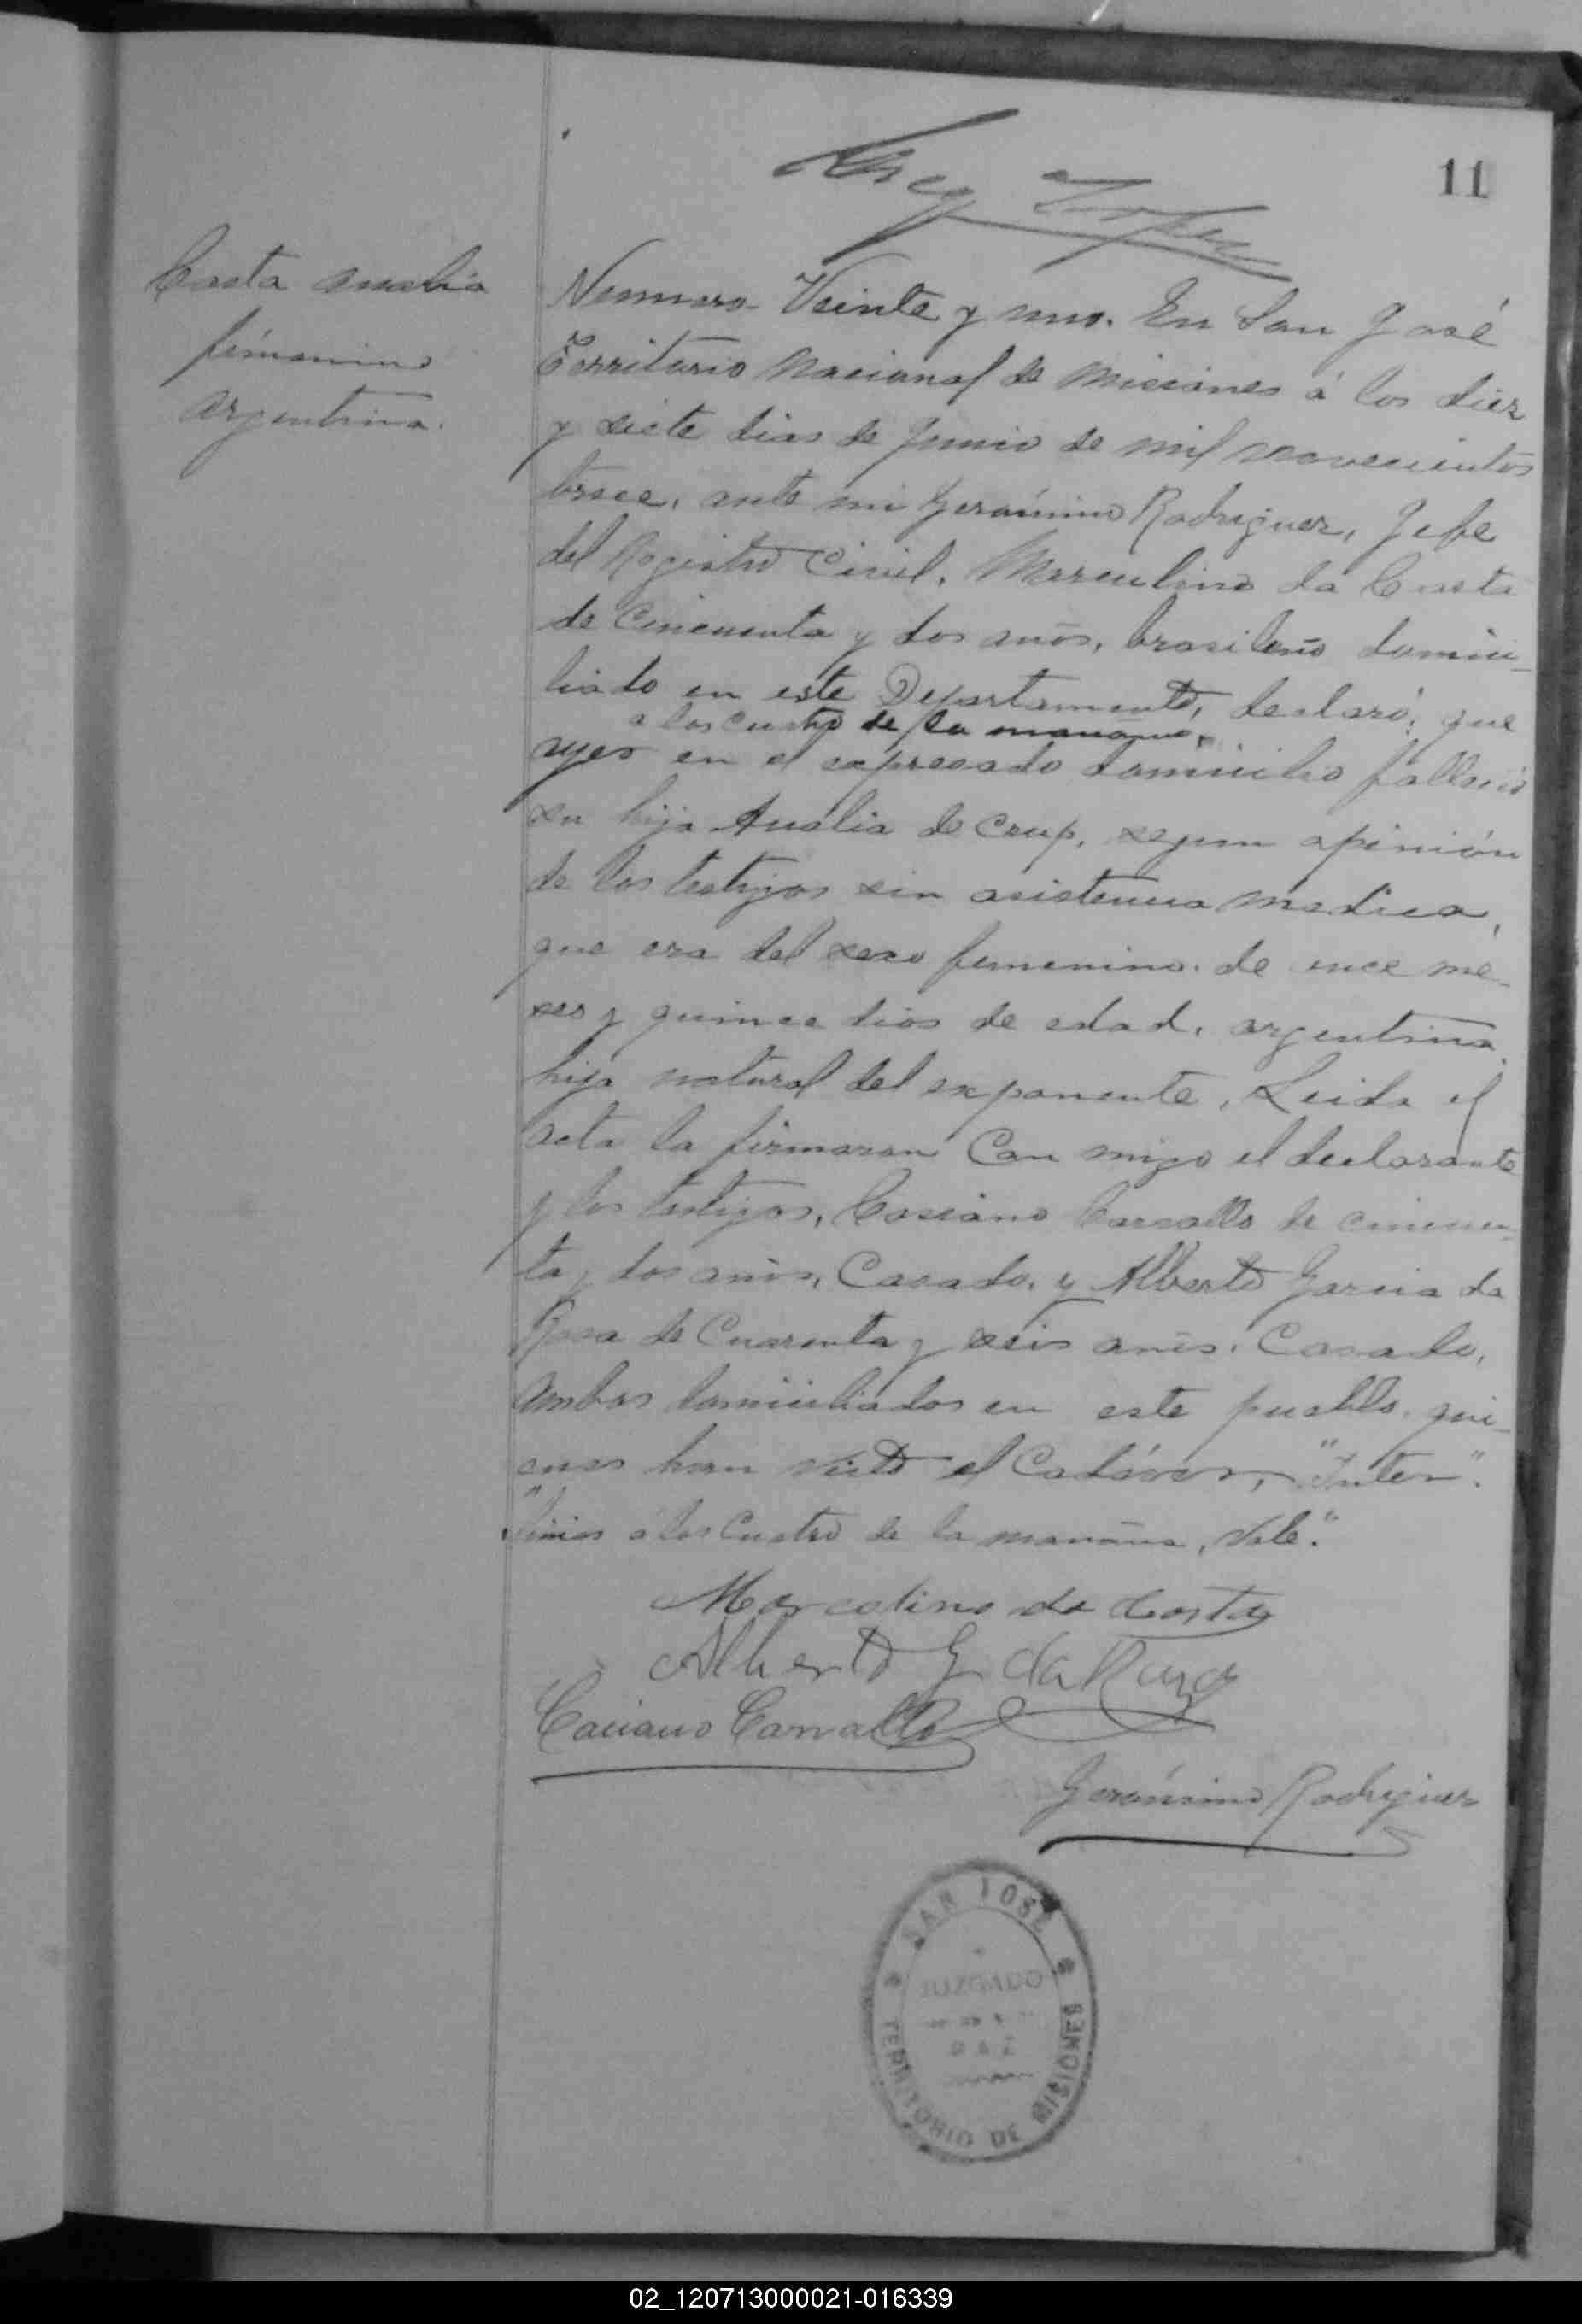 11
Costa Analia
femenino
argentina.
Numero Veinte y uno. En San José
Territorio Nacional de Misiones á los diez
y siete dias de Junio de mil novecientos
trece, ante mi Gerónimo Rodriguez, Jefe
del Registro Civil, Marculino da Costa
de Cincuenta y dos años, brasileño domici-
liado en este Departamento, declaró; que
a las cuatro de la mañana,
ayer en el expresado domicilio falleció
su hija Analia de Crup, segun opinión
de los testigos sin asistencia medica,
que era del sexo femenino. de once me-
ses y quince dias de edad, argentina,
hija natural del exponente, Leida el
acta la firmaron Con migo el declarante
y los testigos, Casiano Carvallo de cincuen-
ta y dos años, Casado, y Alberto Garcia da
Rosa de Cuarenta y seis anos, Casado,
ambos domiciliados en este pueblo, qui-
enes han visto el Cadáver, "Inter".
"linias á las Cuatro de la mañana, Vale."
Marcolino da Costa
Alberto G da Roza
Caciano Carvallo
Gerónimo Rodriguez
SAN JOSE
JUZGADO
PAZ
TERRITORIO DE MISIONES
02_120713000021-016339